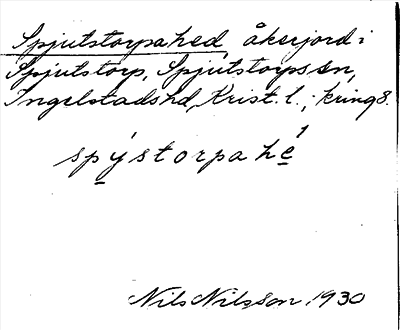 Spjutstorpahed, åkerjord i
Spjutstorp, Spjutstorps sn,
Ingelstads hd, Krist. l.; kring 8.
spýstorpahe
Nils Nilsson, 1930